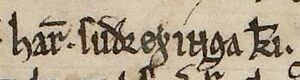 har̅. suðreyinga k̅i.